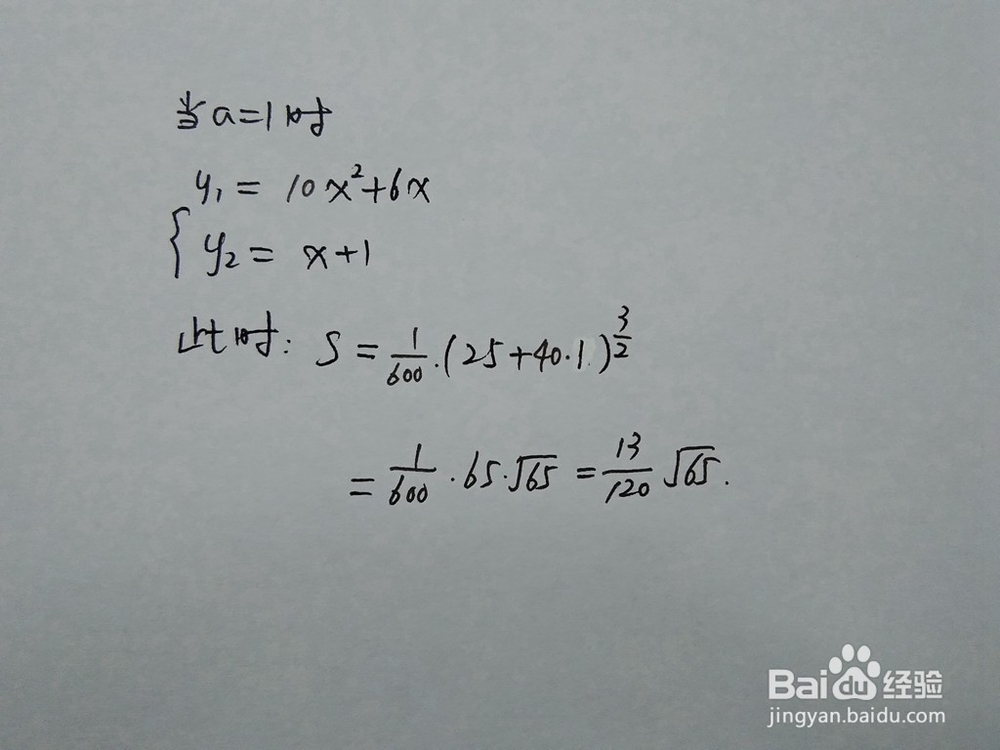 当a=1时
y₁ = 10x²+6x
{ y₂ = x+1
此时: S = 1/600·(25+40·1)^(3/2)
= 1/600·65·√65 = 13/120 √65.
Bai du 经验
jingyan.baidu.com